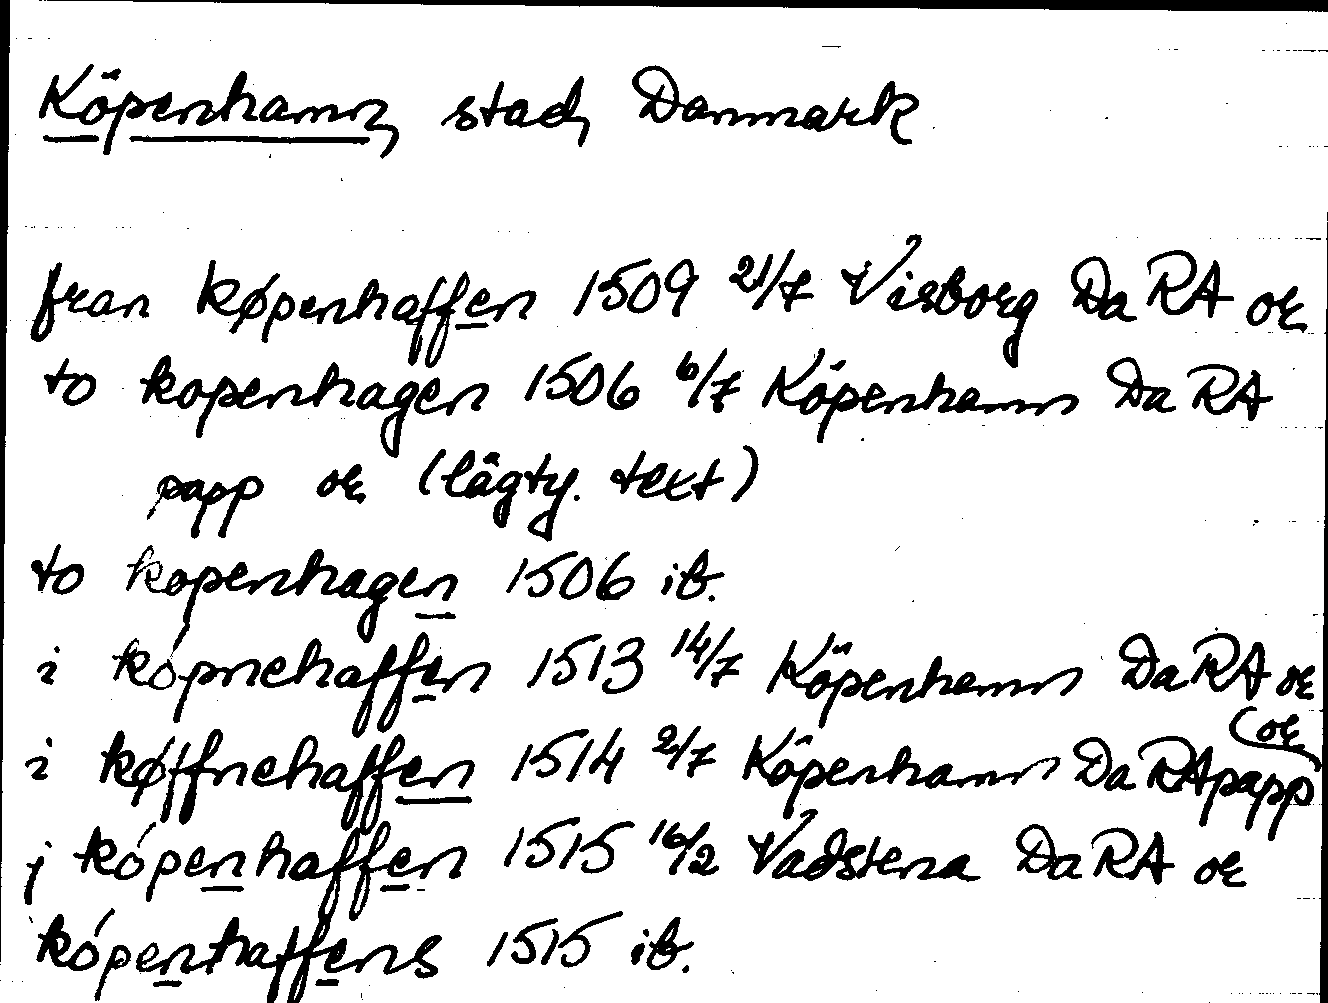 Köpenhamn, stad, Danmark
fran køpenhaffen 1509 21/7 Visborg Da RA or
to kopenhagen 1506 6/7 Köpenhamn Da RA
papp or (lågty. text)
to kopenhagen 1506 ib.
i kópnehaffen 1513 14/7 Köpenhamn Da RA or
i køffnehaffen 1514 2/7 Köpenhamn Da RA papp (or
j kópenhaffen 1515 16/2 Vadstena Da RA or
kópenhaffens 1515 ib.